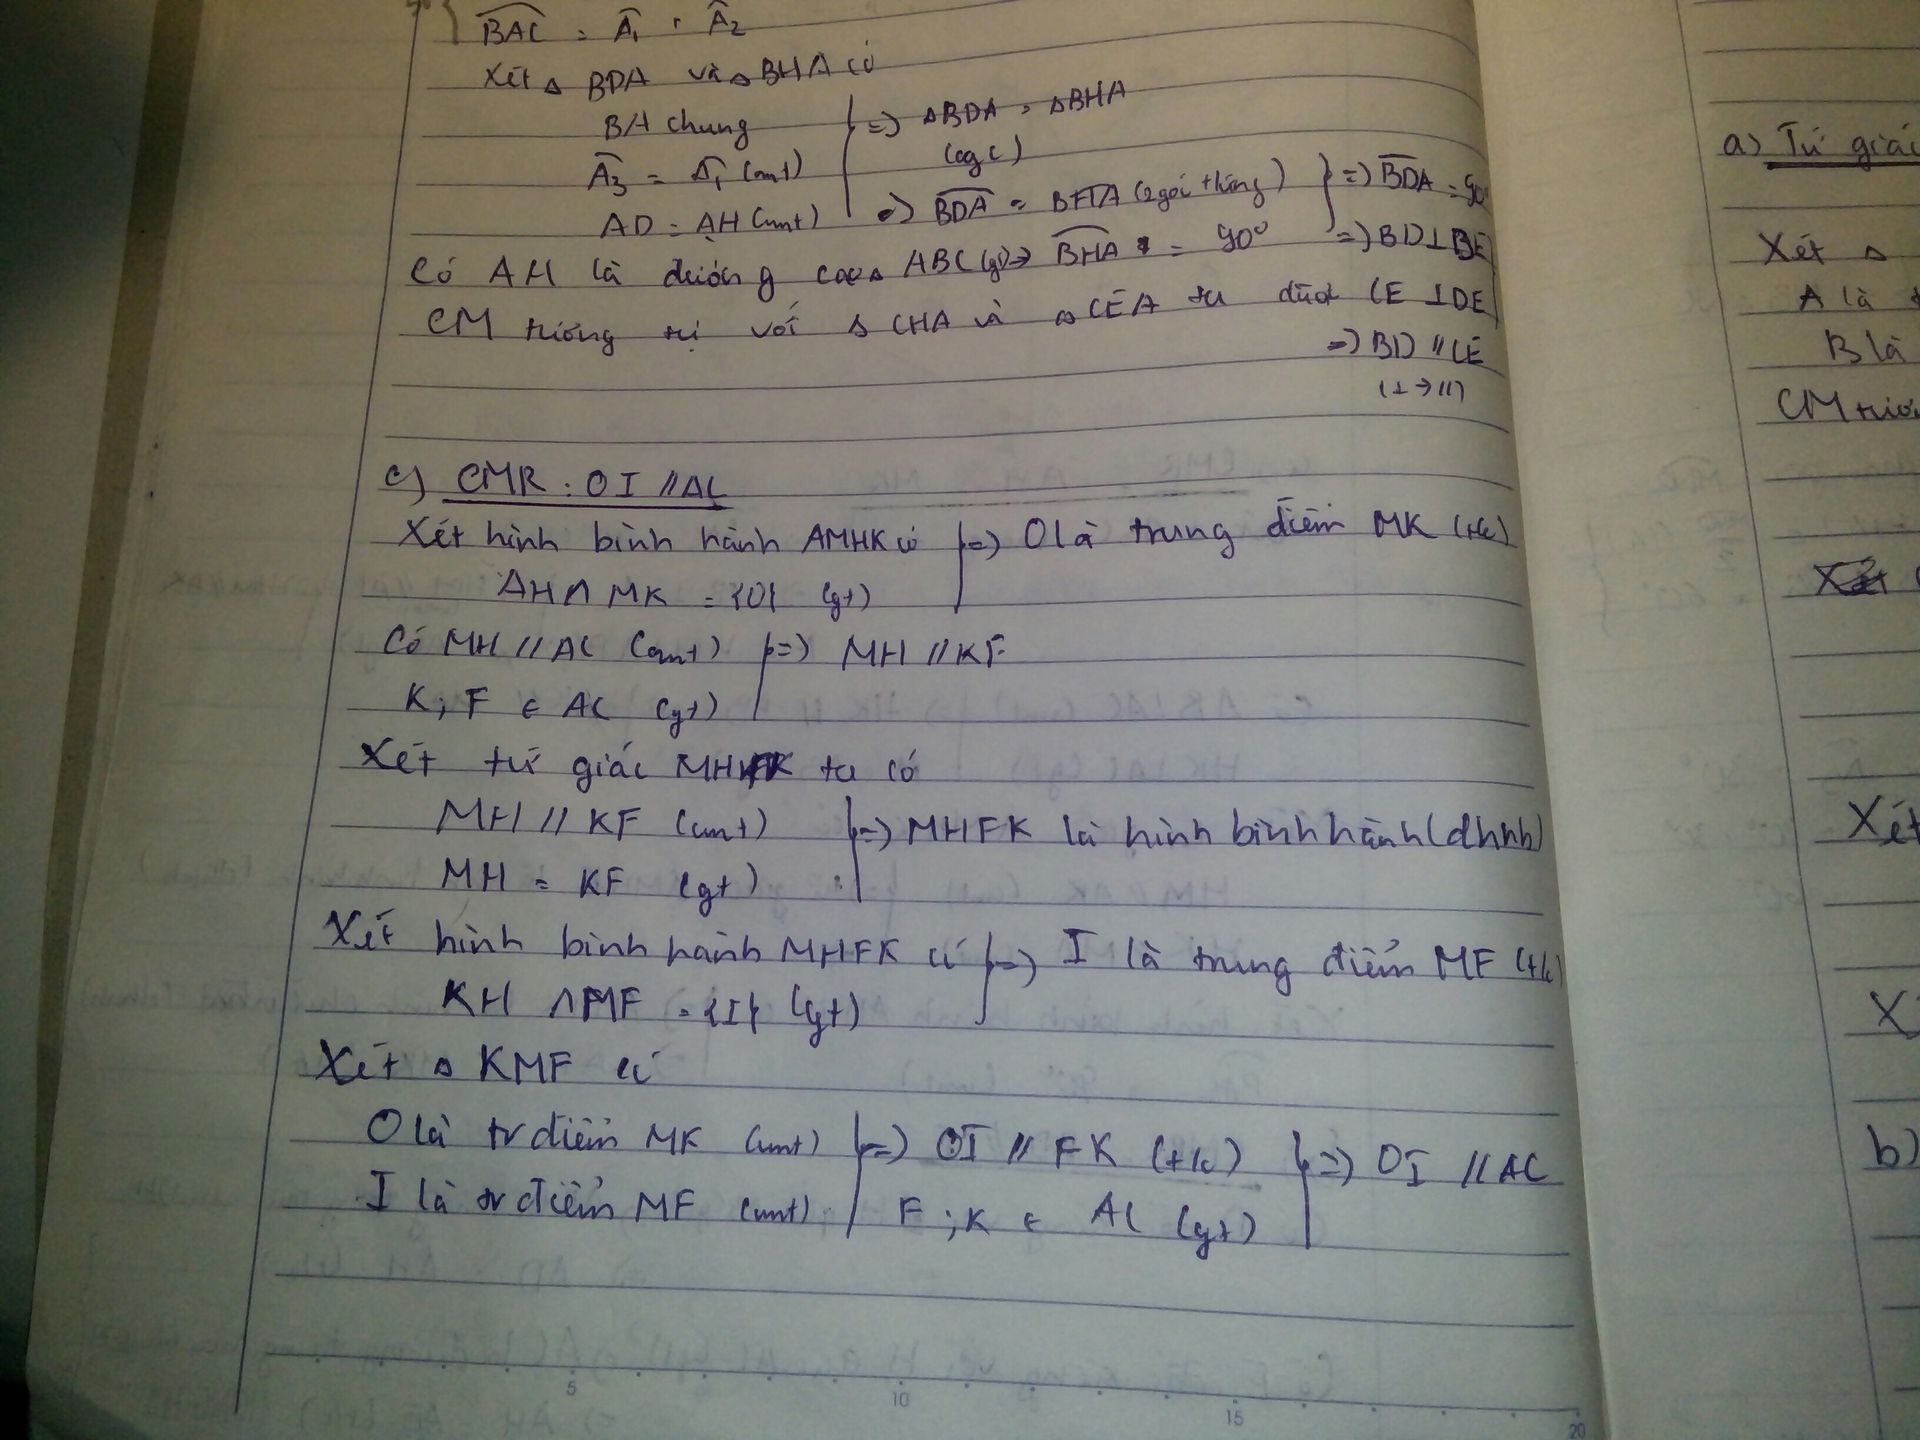 BAC = A1 + A2
Xét Δ BDA và Δ BHA có
BA chung => ΔBDA = ΔBHA
A3 = A1 (cmt) (cgc)
AD = AH (cmt) => BDA = BHA (2 góc tương) => BDA = 90°
Có AH là đường cao Δ ABC (gt) => BHA = 90° => BD ⊥ BE
CM tương tự với Δ CHA và Δ CEA ta được CE ⊥ DE
=> BD // CE
(⊥ → //)
c) CMR : OI // AC
Xét hình bình hành AMHK có => O là trung điểm MK (t/c)
AH ∩ MK = {O} (gt)
Có MH // AC (cmt) => MH // KF
K ; F ∈ AC (gt)
Xét tứ giác MHFK ta có
MH // KF (cmt) => MHFK là hình bình hành (dhnb)
MH = KF (gt)
Xét hình bình hành MHFK có => I là trung điểm MF (t/c)
KH ∩ MF = {I} (gt)
Xét Δ KMF có
O là tr điểm MK (cmt) => OI // FK (t/c) => OI // AC
I là tr điểm MF (cmt) F ; K ∈ AC (gt)
5 10 15 20
a) Tứ giác
Xét Δ
A là
B là
CM tươn
Xét
Xét
b)